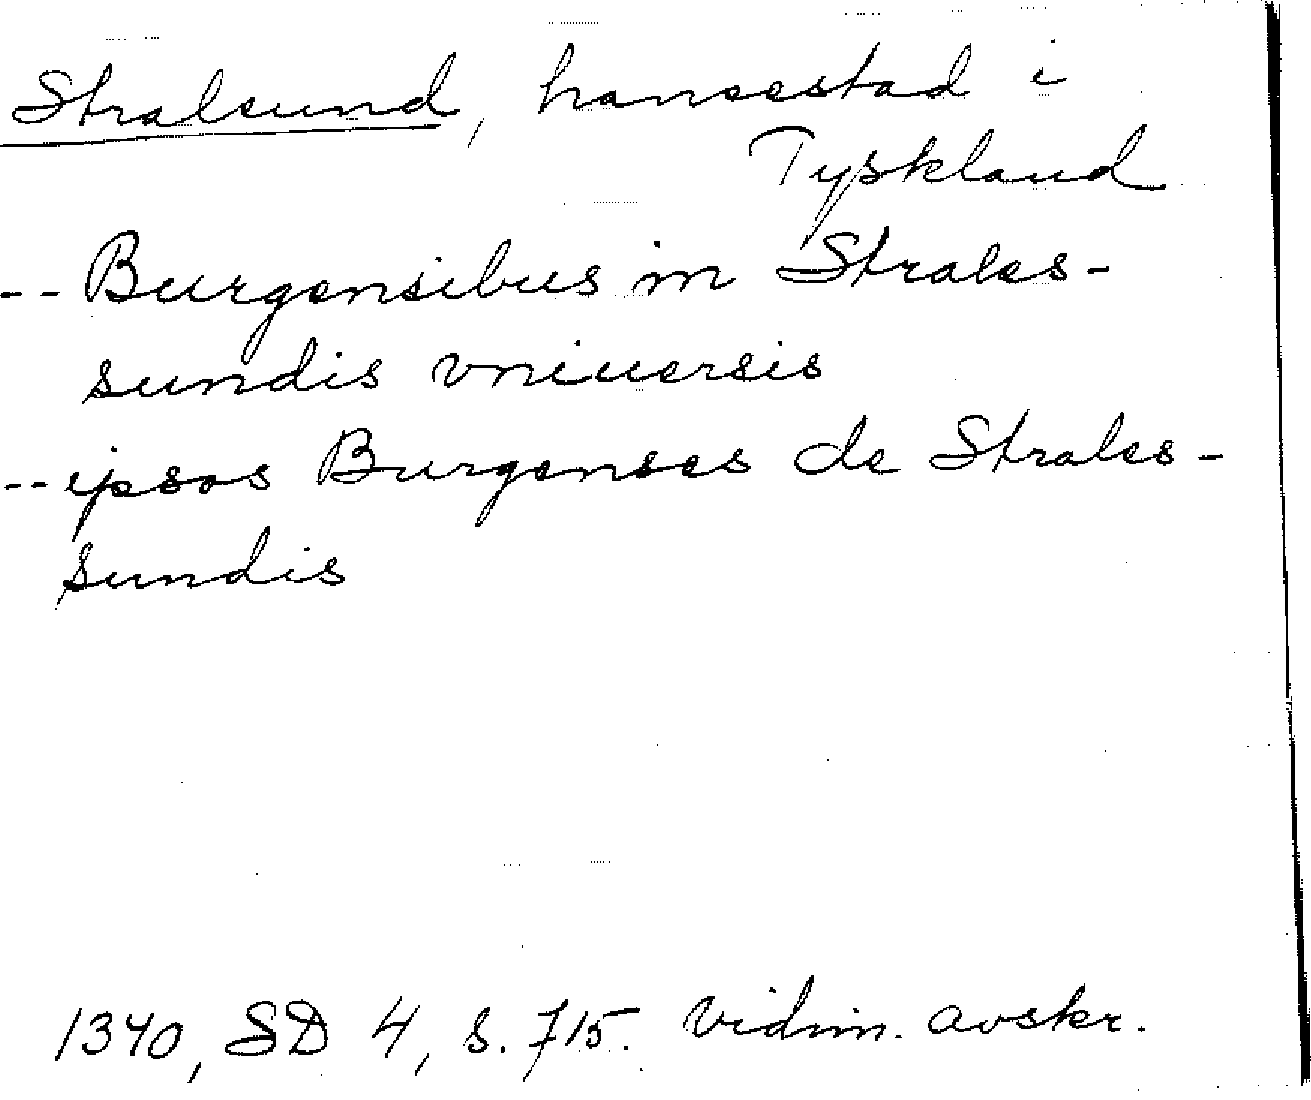 Stralsund, hansestad i
Tyskland
-- Burgensibus in Strales-
sundis vniuersis
-- ipsos Burgenses de Strales-
sundis
1340, SD 4, s. 715. Vidim. avskr.